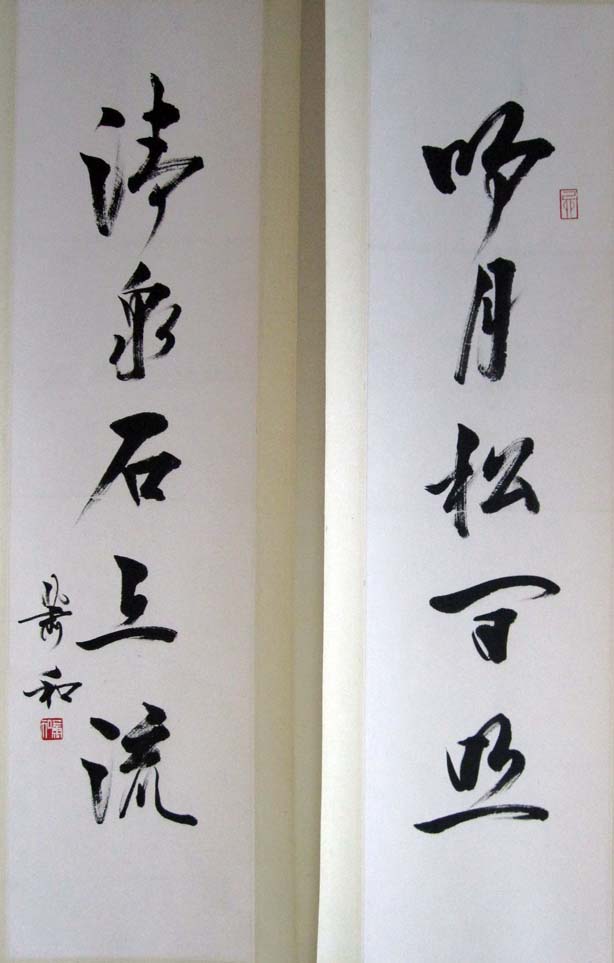 明月松间照
清泉石上流
萧和